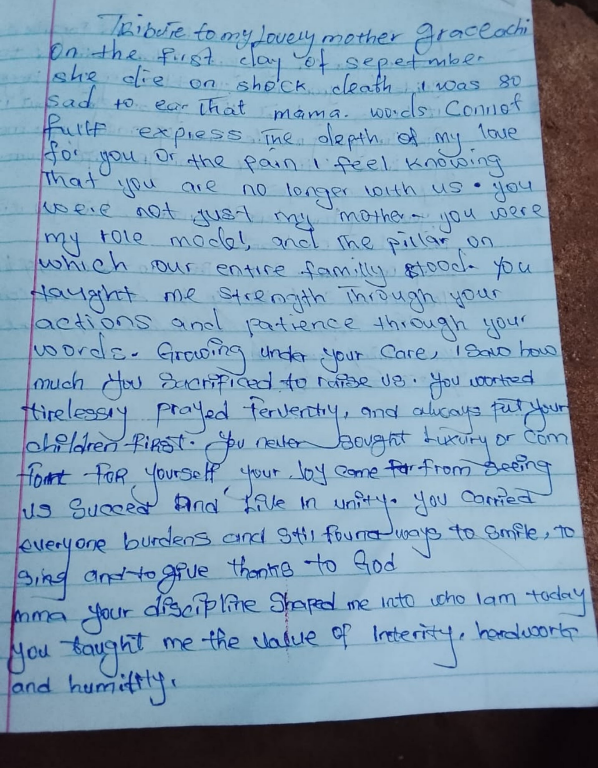 Tribute to my lovely mother graceachi
On the first day of sepetmber
she die on shock death, it was so
sad to ear that mama. words Connot
fully express the depth of my love
for you, or the pain I feel knowing
that you are no longer with us. you
were not just my mother- you were
my role model, and the pillar on
which our entire familly stood. You
taught me strength through your
actions and patience through your
words. Growing under your care, I saw how
much you sacrificed to raise us. You worked
tirelessly prayed ferverntly, and always put your
children first. You never sought luxury or com
fort for yourself, your Joy come from seeing
us succeed and live in unity. you carried
everyone burdens and still found ways to smile, to
sing and to give thanks to God
mma your discipline shaped me into who I am today
you taught me the value of Interity, hardwork
and humitly.